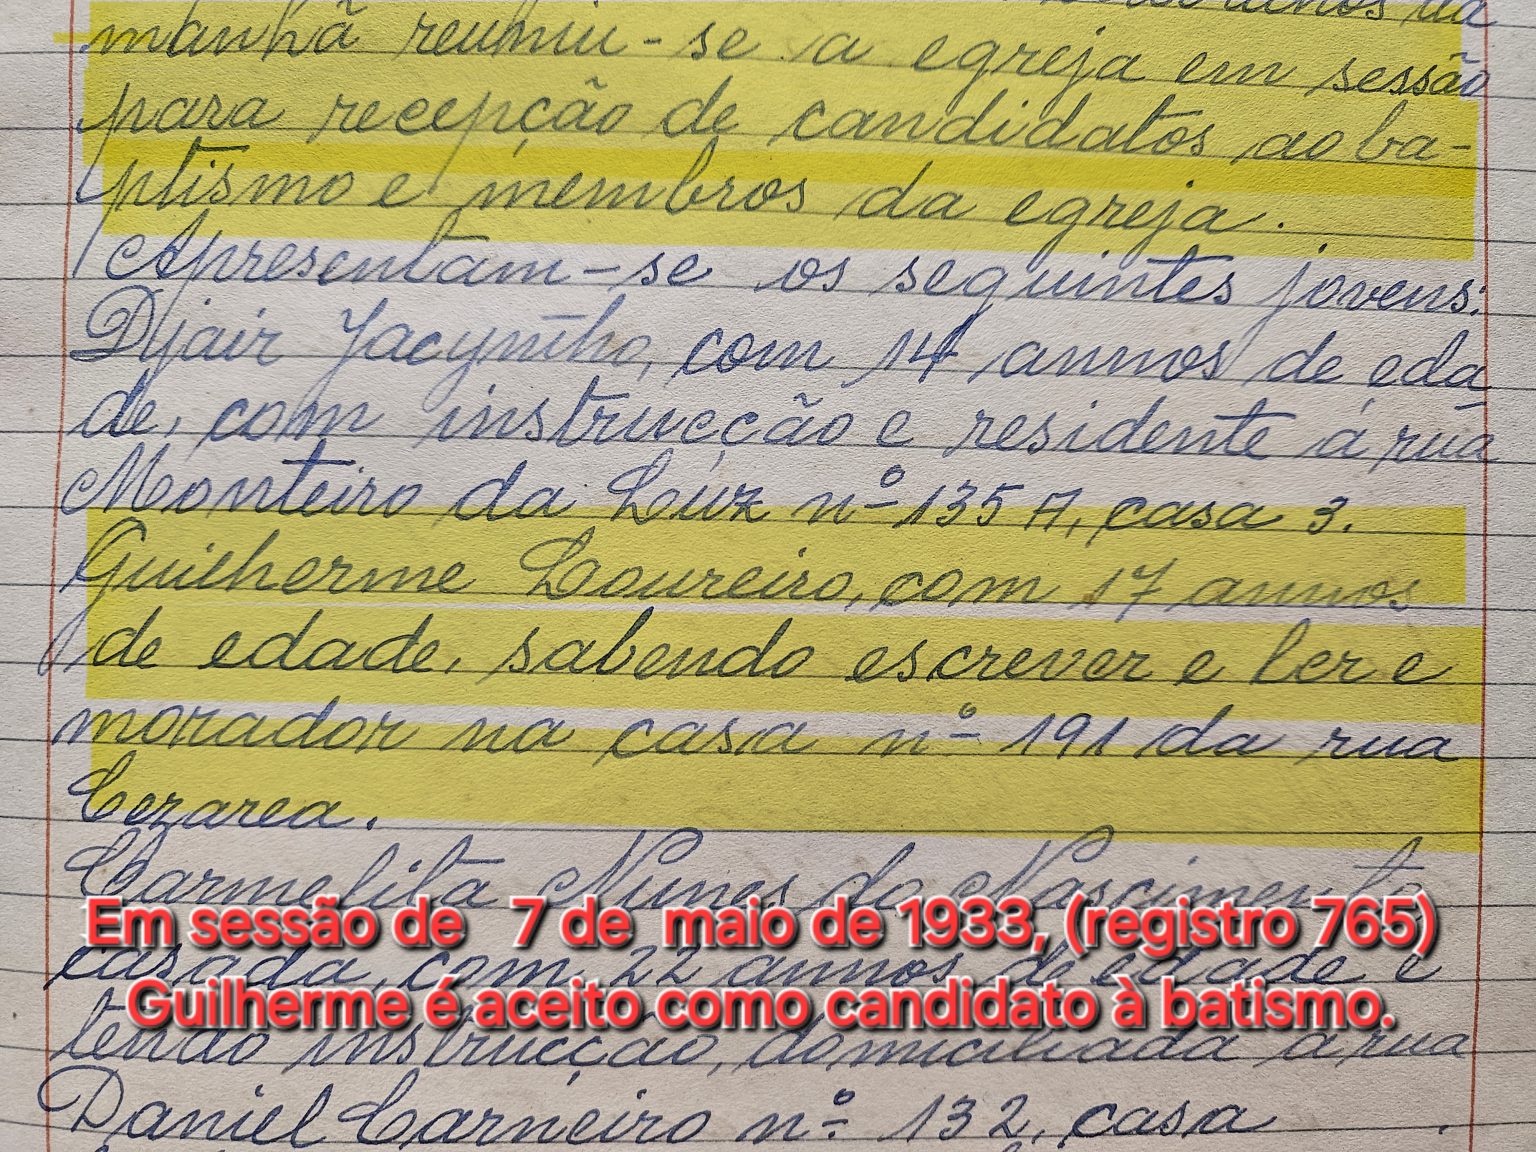 manhã reuniu-se a egreja em sessão
para recepção de candidatos ao ba-
ptismo e membros da egreja.
Apresentam-se os seguintes jovens:
Djair Jacyntho, com 14 annos de eda
de, com instrucção e residente á rua
Monteiro da Luz nº 135 A, casa 3.
Guilherme Loureiro, com 17 annos
de edade, sabendo escrever e ler e
morador na casa nº 191 da rua
Cezarea.
Carmelita Nunes do Nascimento,
Em sessão de 7 de maio de 1933, (registro 765)
casada, com 22 annos de edade e
Guilherme é aceito como candidato à batismo.
tendo instrucção, domiciliada á rua
Daniel Carneiro nº 132, casa